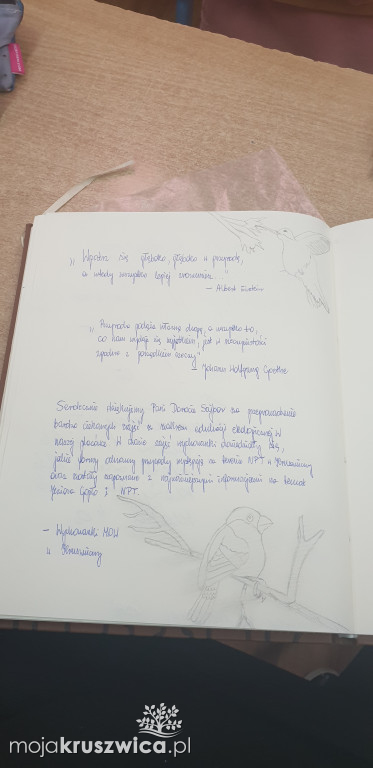 „Wpatrz się głęboko, głęboko w przyrodę,
a wtedy wszystko lepiej zrozumiesz."
– Albert Einstein
„Przyroda podąża własną drogą, a wszystko to,
co nam wydaje się wyjątkiem, jest w rzeczywistości
zgodne z porządkiem rzeczy"
– Johann Wolfgang Goethe
Serdecznie dziękujemy Pani Dorocie za przeprowadzenie
bardzo ciekawych zajęć w zakresie edukacji ekologicznej w
naszej placówce. W czasie zajęć wychowanki dowiedziały się,
jakie formy ochrony przyrody występują na terenie NPT w Kruszwicy
oraz zostały zapoznane z najważniejszymi informacjami na temat
Jeziora Gopło i NPT.
– Wychowanki MOW
w Kruszwicy
mojakruszwica.pl